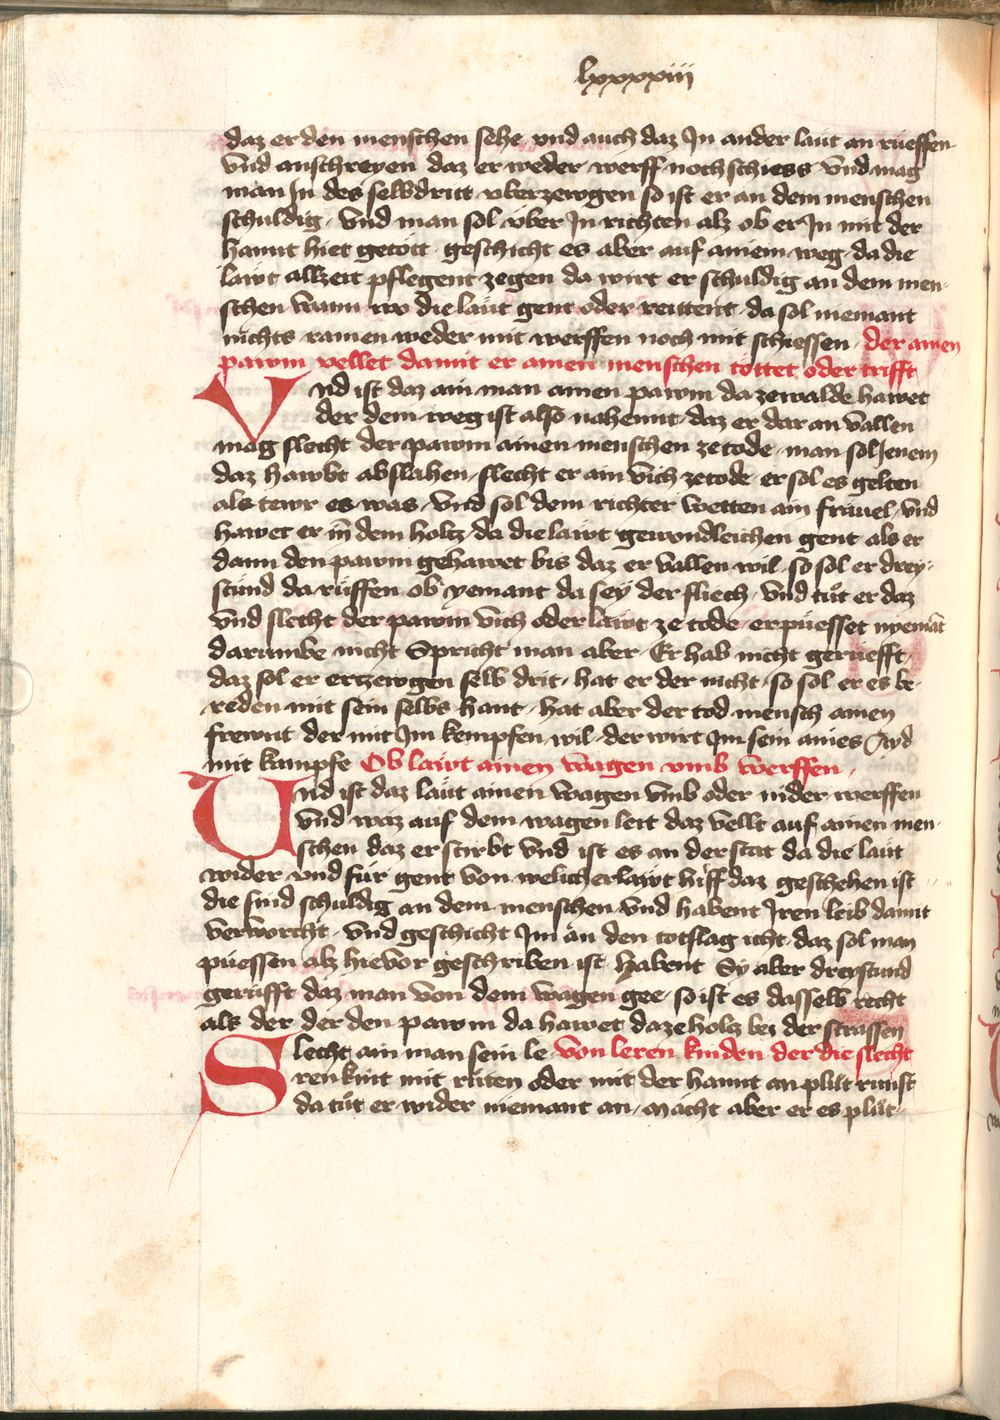 lxxxxiii
daz er den menschen sehe vnd auch daz Jn ander laut an rueffen
vnd anschreyen daz er weder werff noch schiess vnd mag
man Jn des selbdritt vberzewgen so ist er an dem menschen
schuldig vnd man sol vber Jn richten alz ob er Jn mit der
hannt hiet getott geschicht es aber auf ainem weg da die
lawt allzeit pflegent zegen da wirt er schuldig an dem men-
schen wann wo die laut gent oder reittent da sol niemant
nichts ramen weder mit werffen noch mit schiessen der ainen
pawm vellet damit er ainen menschen tottet oder trifft
Vnd ist daz ain man ainen pawm da zewalde hawet
der dem weg ist also nahennt daz er dar an vallen
mag slecht der pawm ainen menschen zetode man sol Jenem
daz hawbt abslahen slecht er ain vich zetode er sol es gelten
als tewr es was vnd sol dem richter wetten ain frauel vnd
hawet er in dem holtz da die lawt gewondleichen gent als er
dann den pawm gehawet bis daz er vallen wil so sol er drey-
stund da ruffen ob yemant da sey der fliech vnd tut er daz
vnd slecht der pawm vich oder lawt ze tode er puesset nyemat
darumbe nicht Spricht man aber Er hab nicht geruefft
daz sol er erzewgen selb drit hat er der nicht so sol er es be-
reden mit sein selbs hant hat aber der tod mensch ainen
frewnt der mit Jm kempfen wil der wirt Jm sein aines Ayd
mit kampfe Ob lawt ainen wagen vmb werffen
Vnd ist daz laut ainen wagen vmb oder nider werffen
vnd waz auf dem wagen leit daz vellt auf ainen men-
schen daz er stirbt vnd ist es an der stat da die laut
wider vnd fur gent von welicher lawt hilff daz geschehen ist
die sind schuldig an dem menschen vnd habent Jren leib damit
verworcht vnd geschicht Jm an den totslag icht daz sol man
puessen alz hievor geschriben ist habent Sy aber dreystund
gerufft daz man von dem wagen gee so ist es dasselb recht
als der der den pawm da hawet daze holtz bey der strassen
Slecht ain man sein le von leren kinden der die slecht
ren kint mit ruten oder mit der hannt an plut runst
da tut er wider niemant an macht aber er es plut-